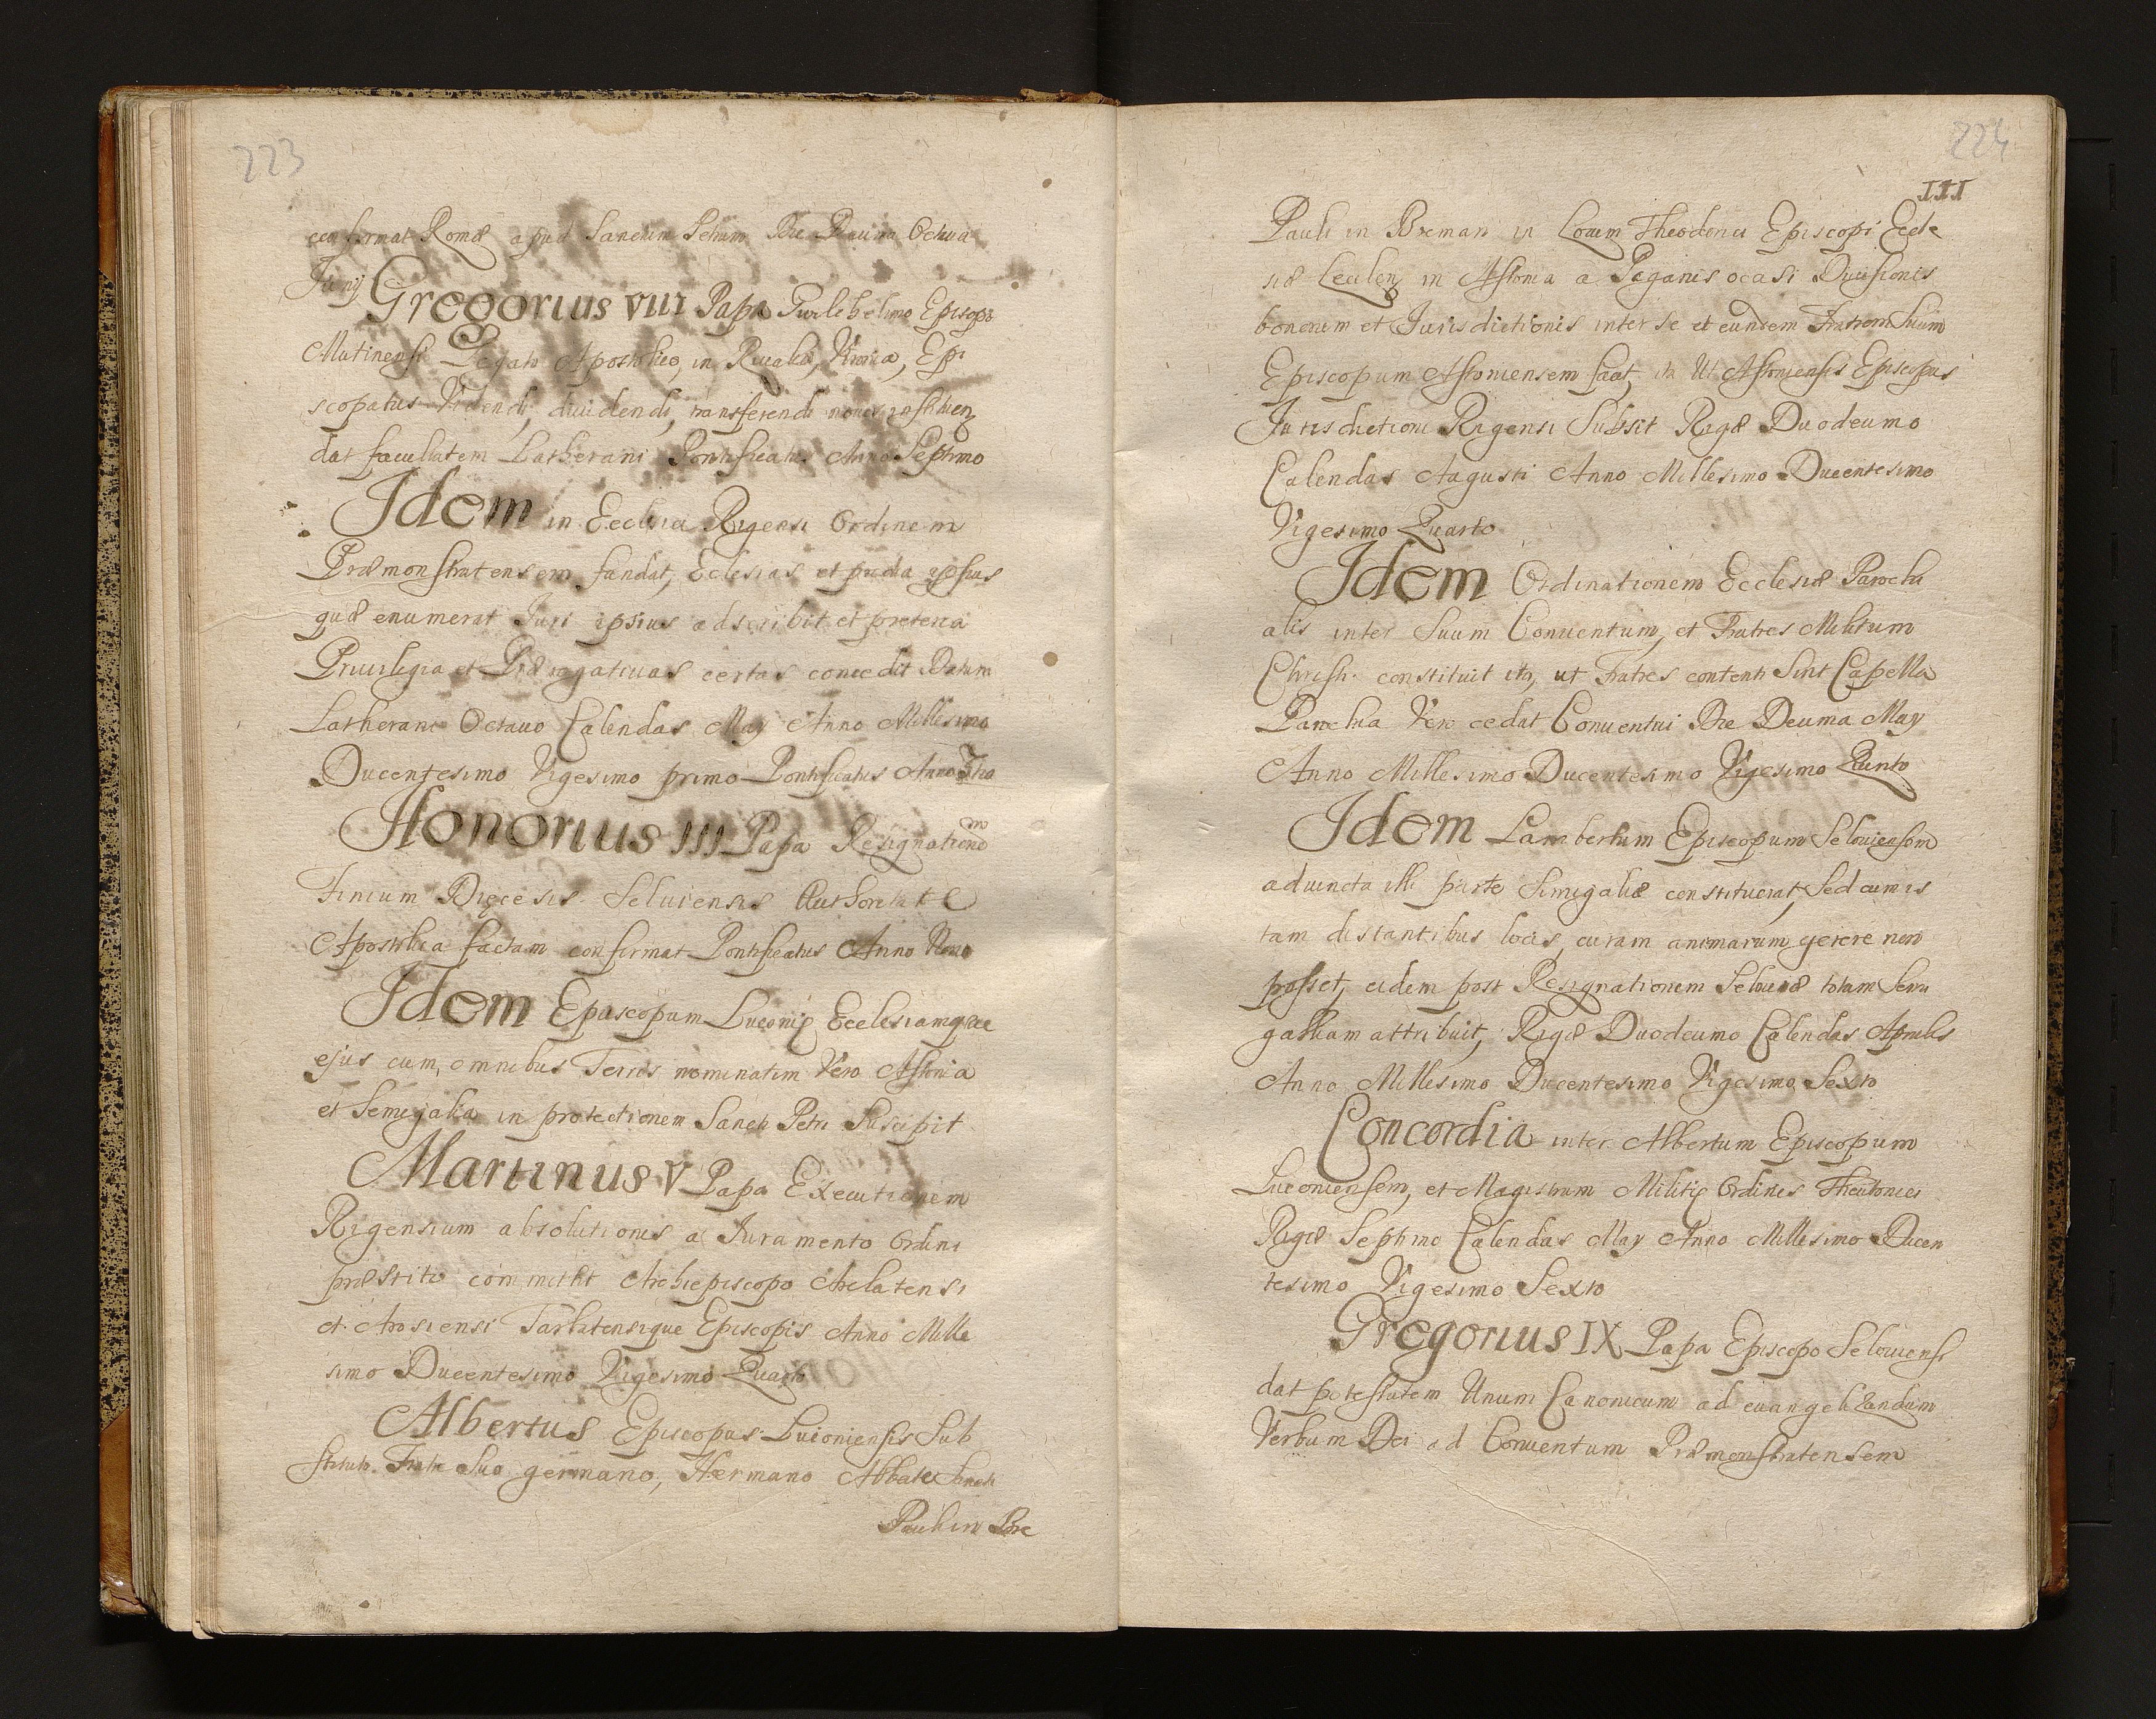 223
confirmat Romæ apud Sanctum Petrum Die Decima Octaua
Junij
Gregorius VIII Papa Guilelhelmo Episcopo
Mutinensi Legato Apostolico, in Reualia, Vironia, Epi
scopatus Videndi, diuidendi, transferendi nouos instituen
dat facultatem Latherani Pontificatus Anno Septimo
Idem in Ecclesia Rigensi Ordinem
Præmonstratensem fundat, Eclesias et prædia ipsius
quæ enumerat Juri ipsius adscribit et preterea
Priuilegia et Prærogatiuas certas concedit Datum
Latherani Octauo Calendas May Anno Millesimo
Ducentesimo Vigesimo primo Pontificatus Anno
Honorius III Papa Resignationem
Finium Diæcesis Seluiensis Authoritate
Apostolica factam confirmat Pontificatus Anno Nono
Idem Episcopum Liuoniæ Ecclesiamque
ejus cum omnibus Terris nominatim Vero Astonia
et Semigalia in protectionem Sancti Petri Suscipit
Martinus V Papa Executionem
Rigensium absolutionis a Juramento Ordini
præstito committit Archiepiscopo Arelatensi
et Arosiensi Tarbatensique Episcopis Anno Mille
simo Ducentesimo Vigesimo Quarto
Albertus Episcopus Liuoniensis Sub
stituto Fratre Suo germano, Hermano Abbate Sancti
Pauli in Bre
224
III
Pauli in Breman in Locum Theodorici Episcopi Eccle
siæ Lealen in Astonia a Paganis ocasi Diuisionis
bonorum et Jurisdictionis inter se et eundem Fratrem Suum
Episcopum Astoniensem facit, ita Ut Astoniensis Episcopus
Jurisdictioni Rigensi Subsit Rigæ Duodecimo
Calendas Augusti Anno Millesimo Ducentesimo
Vigesimo Quarto
Idem Ordinationem Ecclesiæ Parochi
alis inter Suum Conuentum, et Fratres Militum
Christi constituit ita, ut Fratres contenti Sint Capella
Parochia Vero cedat Conuentui Die Decima May
Anno Millesimo Ducentesimo Vigesimo Quinto
Idem Lambertum Episcopum Selouiensem
adiuncta illi parte Simigaliæ constituerat, Sed cum is
tam distantibus locis, curam animarum gerere non
posset, eidem post Resignationem Seloniæ totam Semi
galliam attribuit, Rigæ Duodecimo Calendas Aprilis
Anno Millesimo Ducentesimo Vigesimo Sexto
Concordia inter Albertum Episcopum
Liuoniensem, et Magistrum Militiæ Ordinis Theutonici
Rigæ Septimo Calendas May Anno Millesimo Ducen
tesimo Vigesimo Sexto
Gregorius IX Papa Episcopo Selouiensi
dat potestatem Unum Canonicum ad euangelizandum
Verbum Dei ad Conuentum Præmonstratensem